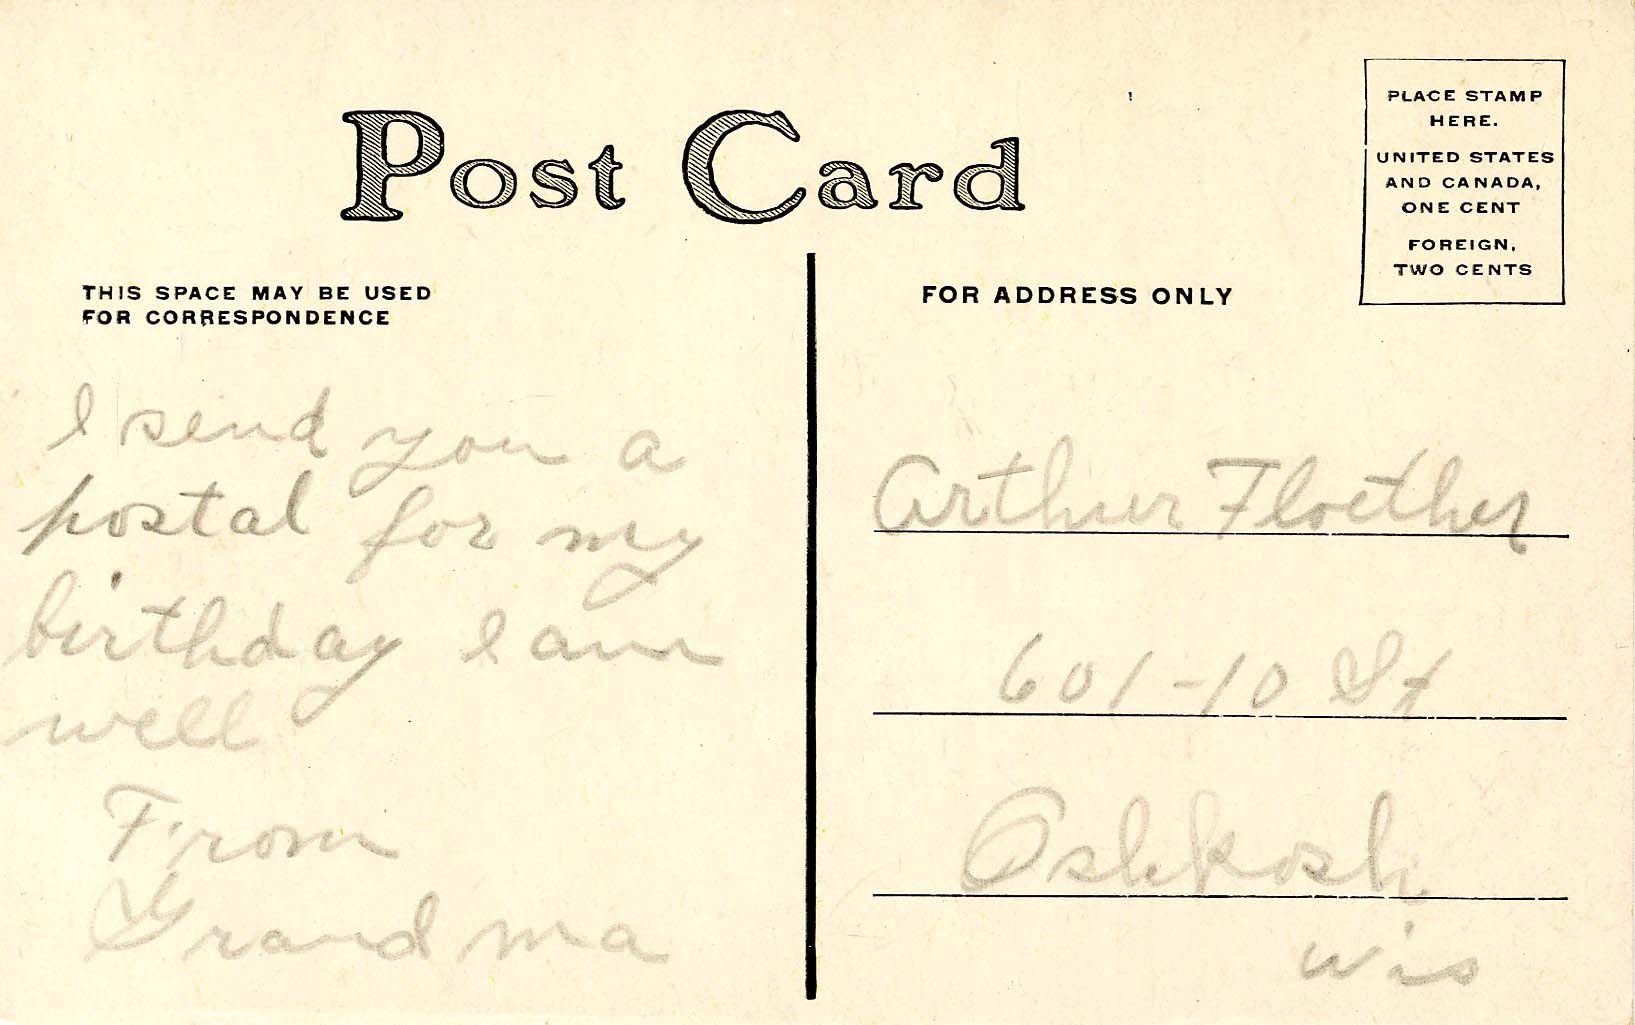 Post Card
PLACE STAMP
HERE.
UNITED STATES
AND CANADA,
ONE CENT
FOREIGN,
TWO CENTS
THIS SPACE MAY BE USED
FOR CORRESPONDENCE
I send you a
postal for my
birthday I am
well
From
Grandma
FOR ADDRESS ONLY
Arthur Floether
601-10 St
Oshkosh
Wis